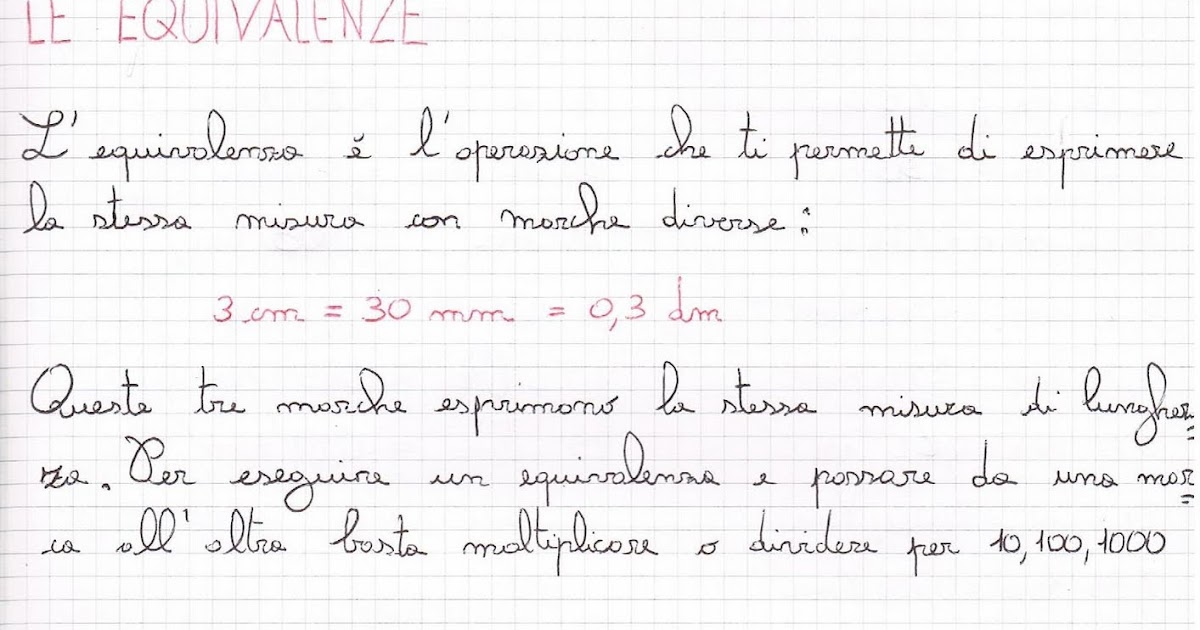 LE EQUIVALENZE
L'equivalenza è l'operazione che ti permette di esprimere
la stessa misura con marche diverse:
3 cm = 30 mm = 0,3 dm
Queste tre marche esprimono la stessa misura di lunghez=
za. Per eseguire un equivalenza e passare da una mar=
ca all'altra basta moltiplicare o dividere per 10, 100, 1000